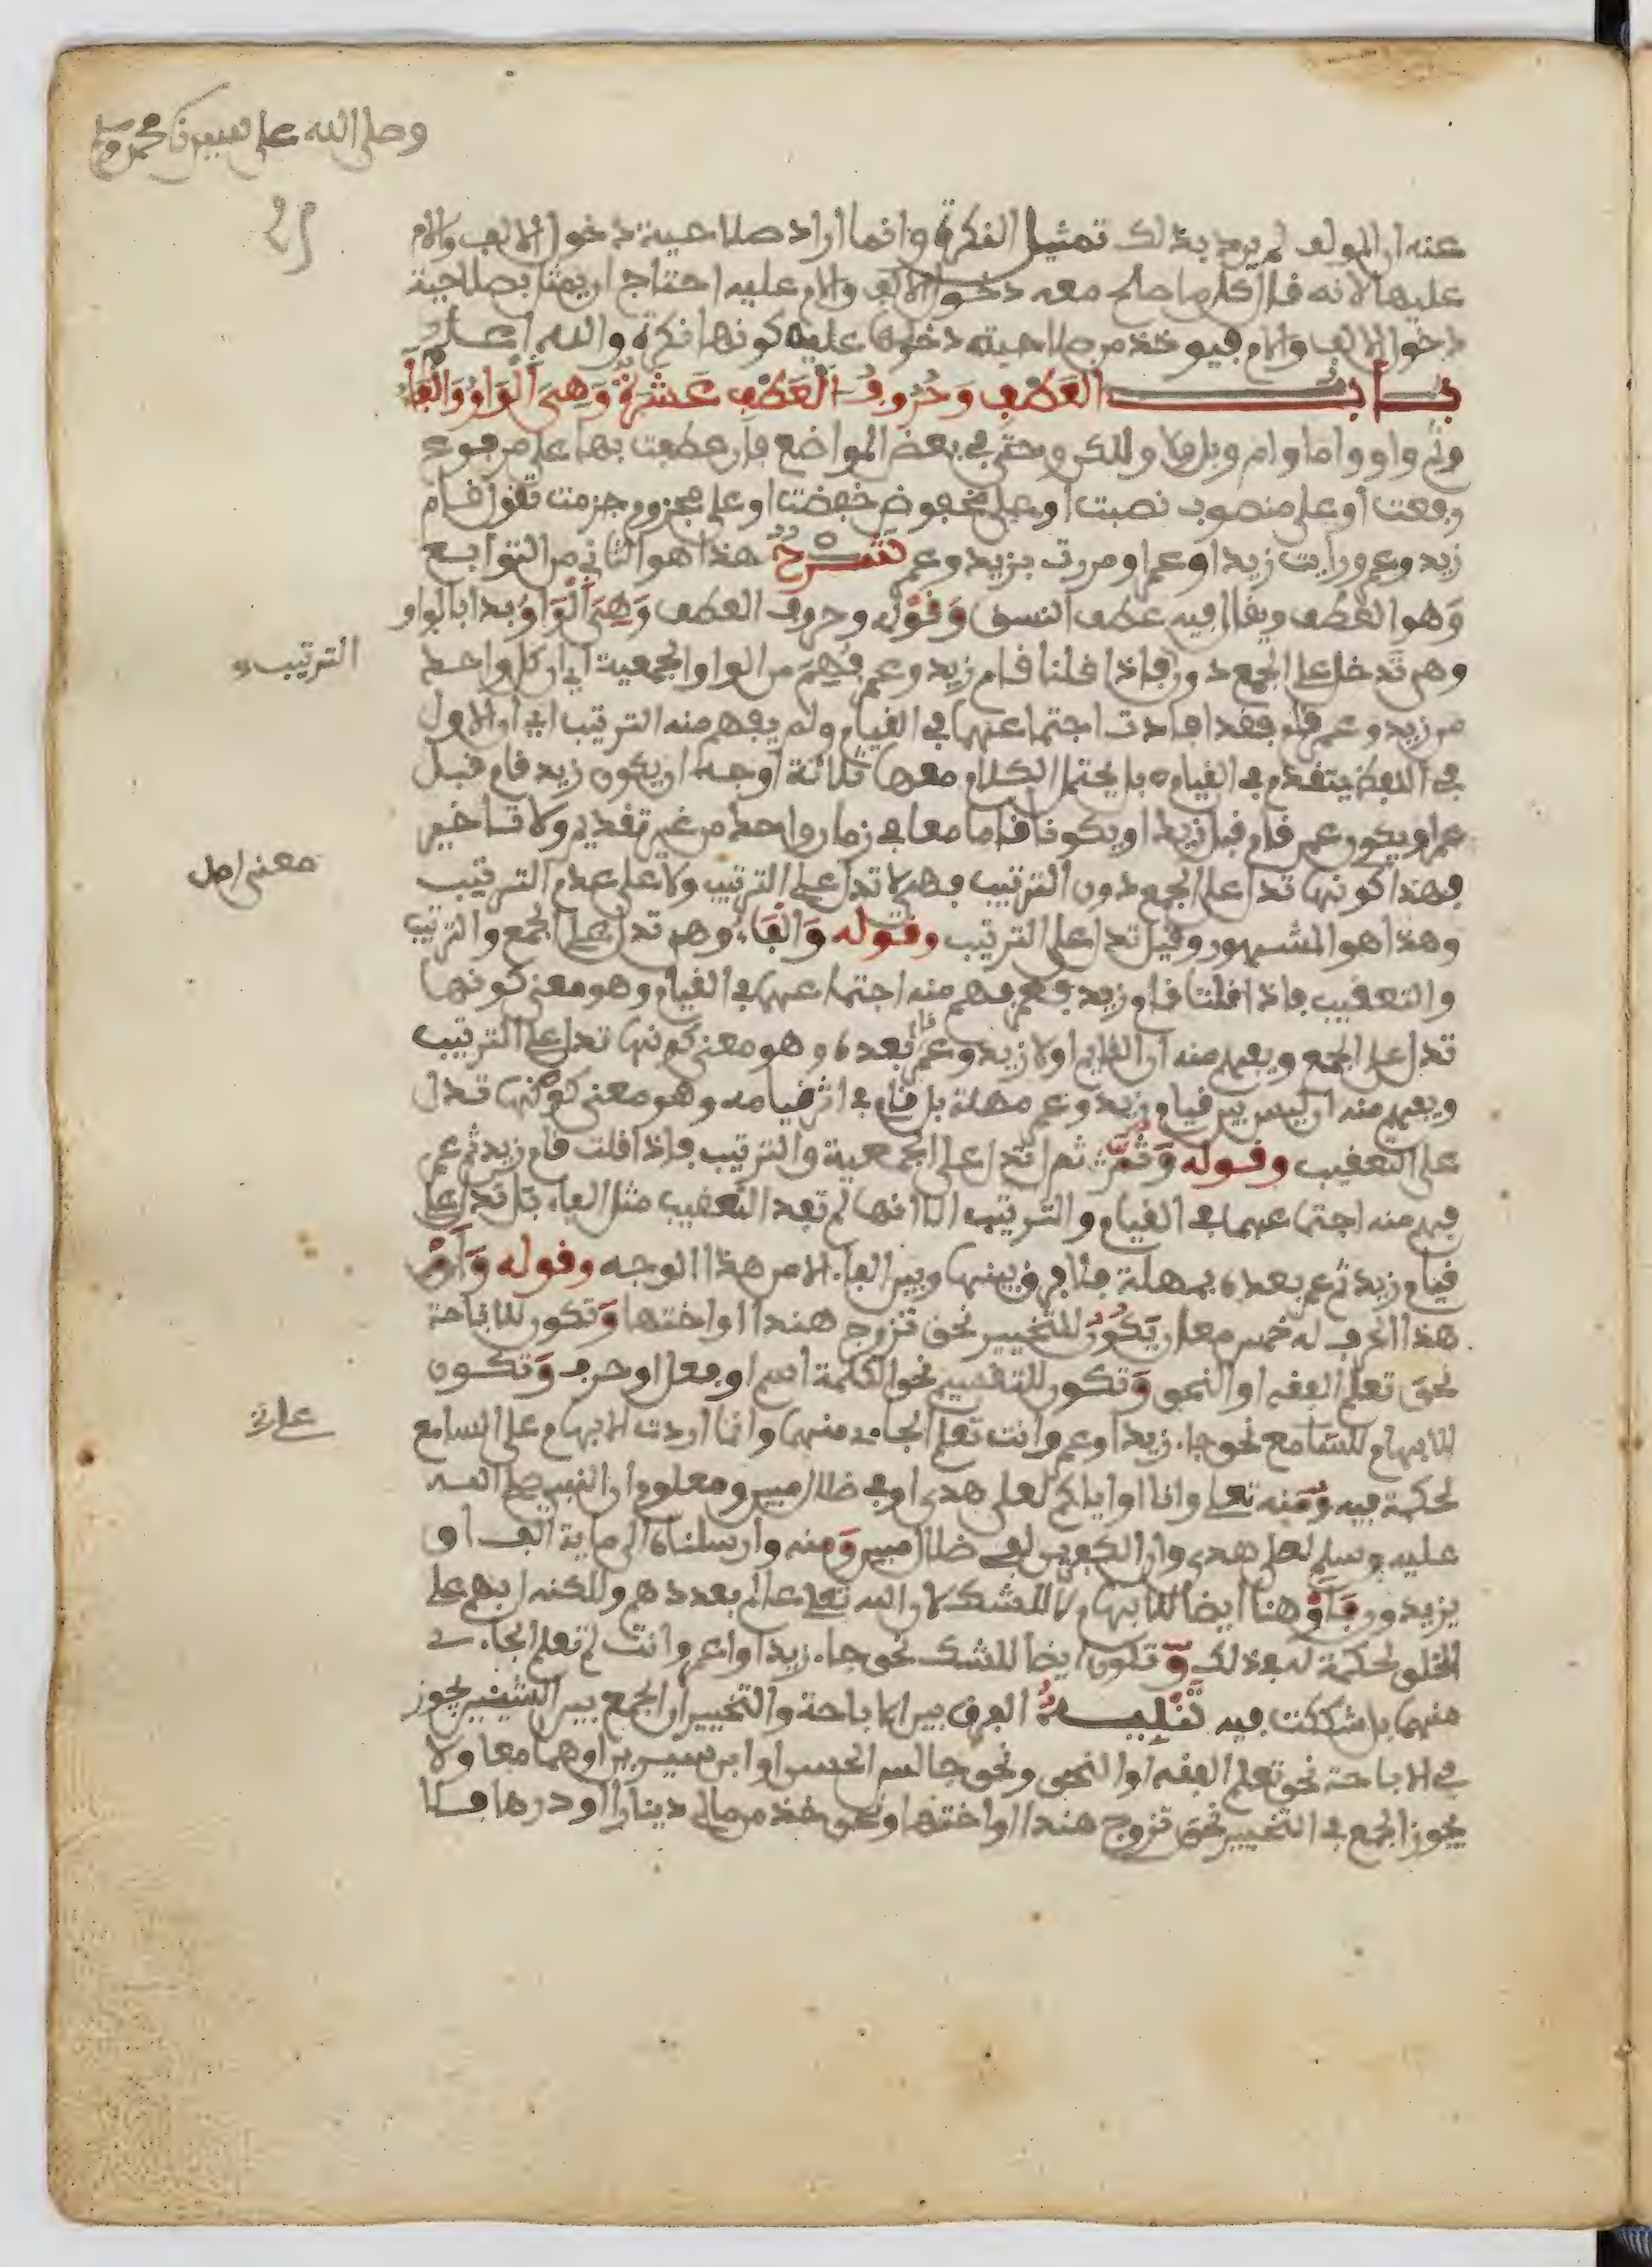 وصلى الله على سيدنا محمد
عنه ان المولف لم يرد بذلك تمثيل النكرة وانما اراد صلاحية دخول الالف والام
عليها لانه قال كل ما صلح معه دخول الالف والام عليه احتاج ان يمثل بصلاحية
دخول الالف والام فيوخذ من صلاحية دخولها عليه كونها نكرة والله اعلم
باب العطف وَحُرُوفُ الْعَطْفِ عَشْرَةٌ وَهِيَ الْوَاوُ وَالْفَاءُ
وثم واو واما وام وبل ولا ولكن وحتى في بعض المواضع فان عطفت بها على مرفوع
رفعت او على منصوب نصبت او على مخفوض خفضت او على مجزوم جزمت تقول قام
زيد وعمر ورايت زيدا وعمرا ومررت بزيد وعمر شرح هذا هو الثاني من التوابع
وهو العطف ويقال فيه عطف النسق وَقَوْله وحروف العطف وَهِيَ الْوَاوُ بدا بالواو
وهي تدخل على الجمع دون فاذا قلنا قام زيد وعمر فهم من الواو الجمعية اي ان كل واحد
الترتيب
من زيد وعمر قام فقد افادت اجتماعهما في القيام ولم يفهم منه الترتيب اي ان الاول
في اللفظ يتقدم في القيام بل يحتمل الكلام معها ثلاثة اوجه ان يكون زيد قام قبل
عمر او يكون عمر قام قبل زيد او يكونا قاما معا في زمان واحد من غير تقديم ولا تاخير
فهذا كونها تدل على الجمع دون الترتيب فهي لا تدل على الترتيب ولا على عدم الترتيب
معنى اصل
وهذا هو المشهور وقيل تدل على الترتيب وقوله وَالْفَاءُ وهي تدل على الجمع والترتيب
والتعقيب فاذا قلنا قام زيد فعمر فهم منه اجتماعهما في القيام وهو معنى كونها
تدل على الجمع ويفهم منه ان القايم اولا زيد وعمر قام بعده وهو معنى كونها تدل على الترتيب
ويفهم منه ان ليس بين قيام زيد وعمر مهلة بل قام في اثر قيامه وهو معنى كونها تدل
على التعقيب وقوله وَثُمَّ ثم تدل على الجمعية والترتيب فاذا قلت قام زيد ثم عمر
فهم منه اجتماعهما في القيام والترتيب الا انها لم تفد التعقيب مثل الفاء بل تدل على
قيام زيد ثم عمر بعده بمهلة فلا فرق بينها وبين الفاء الا من هذا الوجه وقوله وَأَوْ
هذا الحرف له خمس معان يَكُونُ للتخيير نحو تزوج هندا او اختها وَتكون للاباحة
نحو تعلم الفقه او النحو وَتكون للتقسيم نحو الكلمة اسم او فعل او حرف وَتكون
للابهام للسامع نحو جاء زيد او عمر وانت تعلم الجاءي منهما وانما اردت الابهام على السامع
لحكمة فيه وَمنه تعلى وانا او اياكم لعلى هدى او في ضلال مبين ومعلوم ان النبي صلى الله
عليه وسلم لعلى هدى وان الكفرين لفي ضلال مبين وَمنه وارسلناه الى ماية الف او
يزيدون فَأَوْ هنا ايضا للابهام لا للشك لان الله تعلى عالم بعددهم ولكنه ابهم على
الخلق لحكمة له في ذلك وَتكون ايضا للشك نحو جاء زيد او عمر وانت لم تعلم الجاءي
منهما بل شككت فيه تَنْبِيهٌ الفرق بين الاباحة والتخيير ان الجمع بين الشيئين يجوز
في الاباحة نحو تعلم الفقه او النحو ونحو جالس الحسن او ابن سيرين او هما معا ولا
يجوز الجمع في التخيير نحو تزوج هندا او اختها ونحو خذ من مالي دينارا او درهما فلا